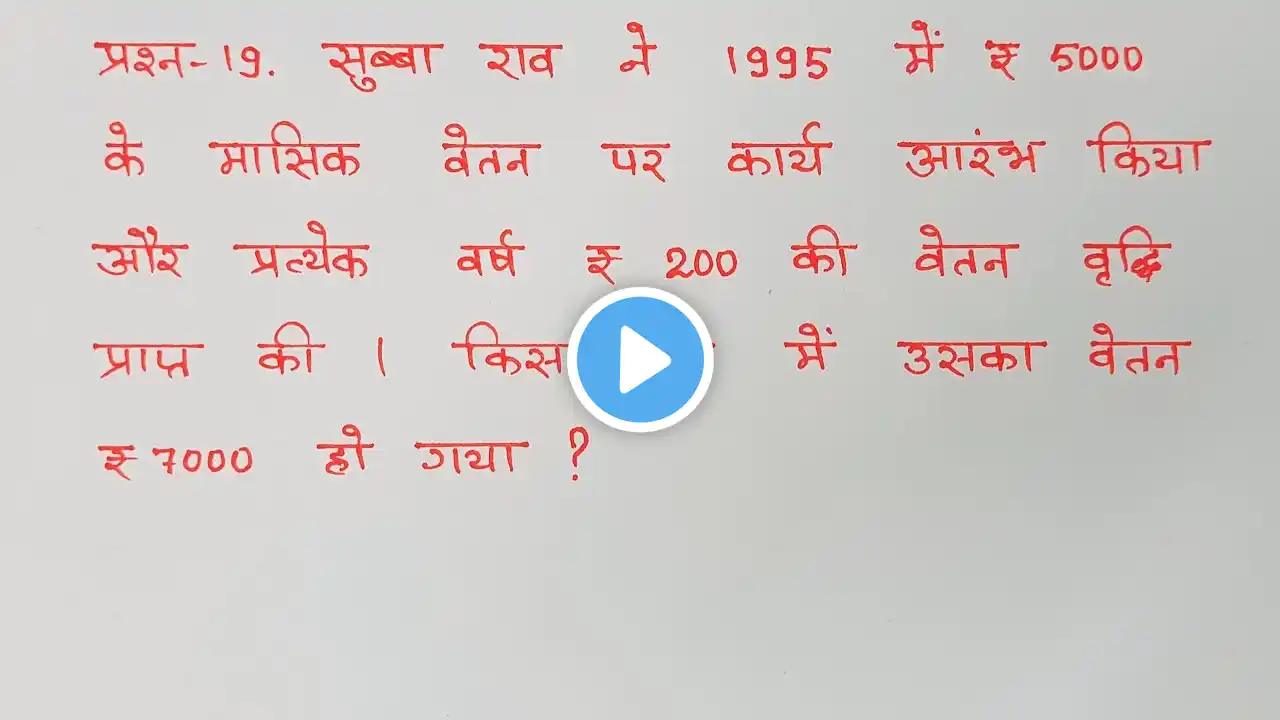 प्रश्न-19. सुब्बा राव ने 1995 में ₹ 5000
के मासिक वेतन पर कार्य आरंभ किया
और प्रत्येक वर्ष ₹ 200 की वेतन वृद्धि
प्राप्त की । किस में उसका वेतन
₹ 7000 हो गया ?